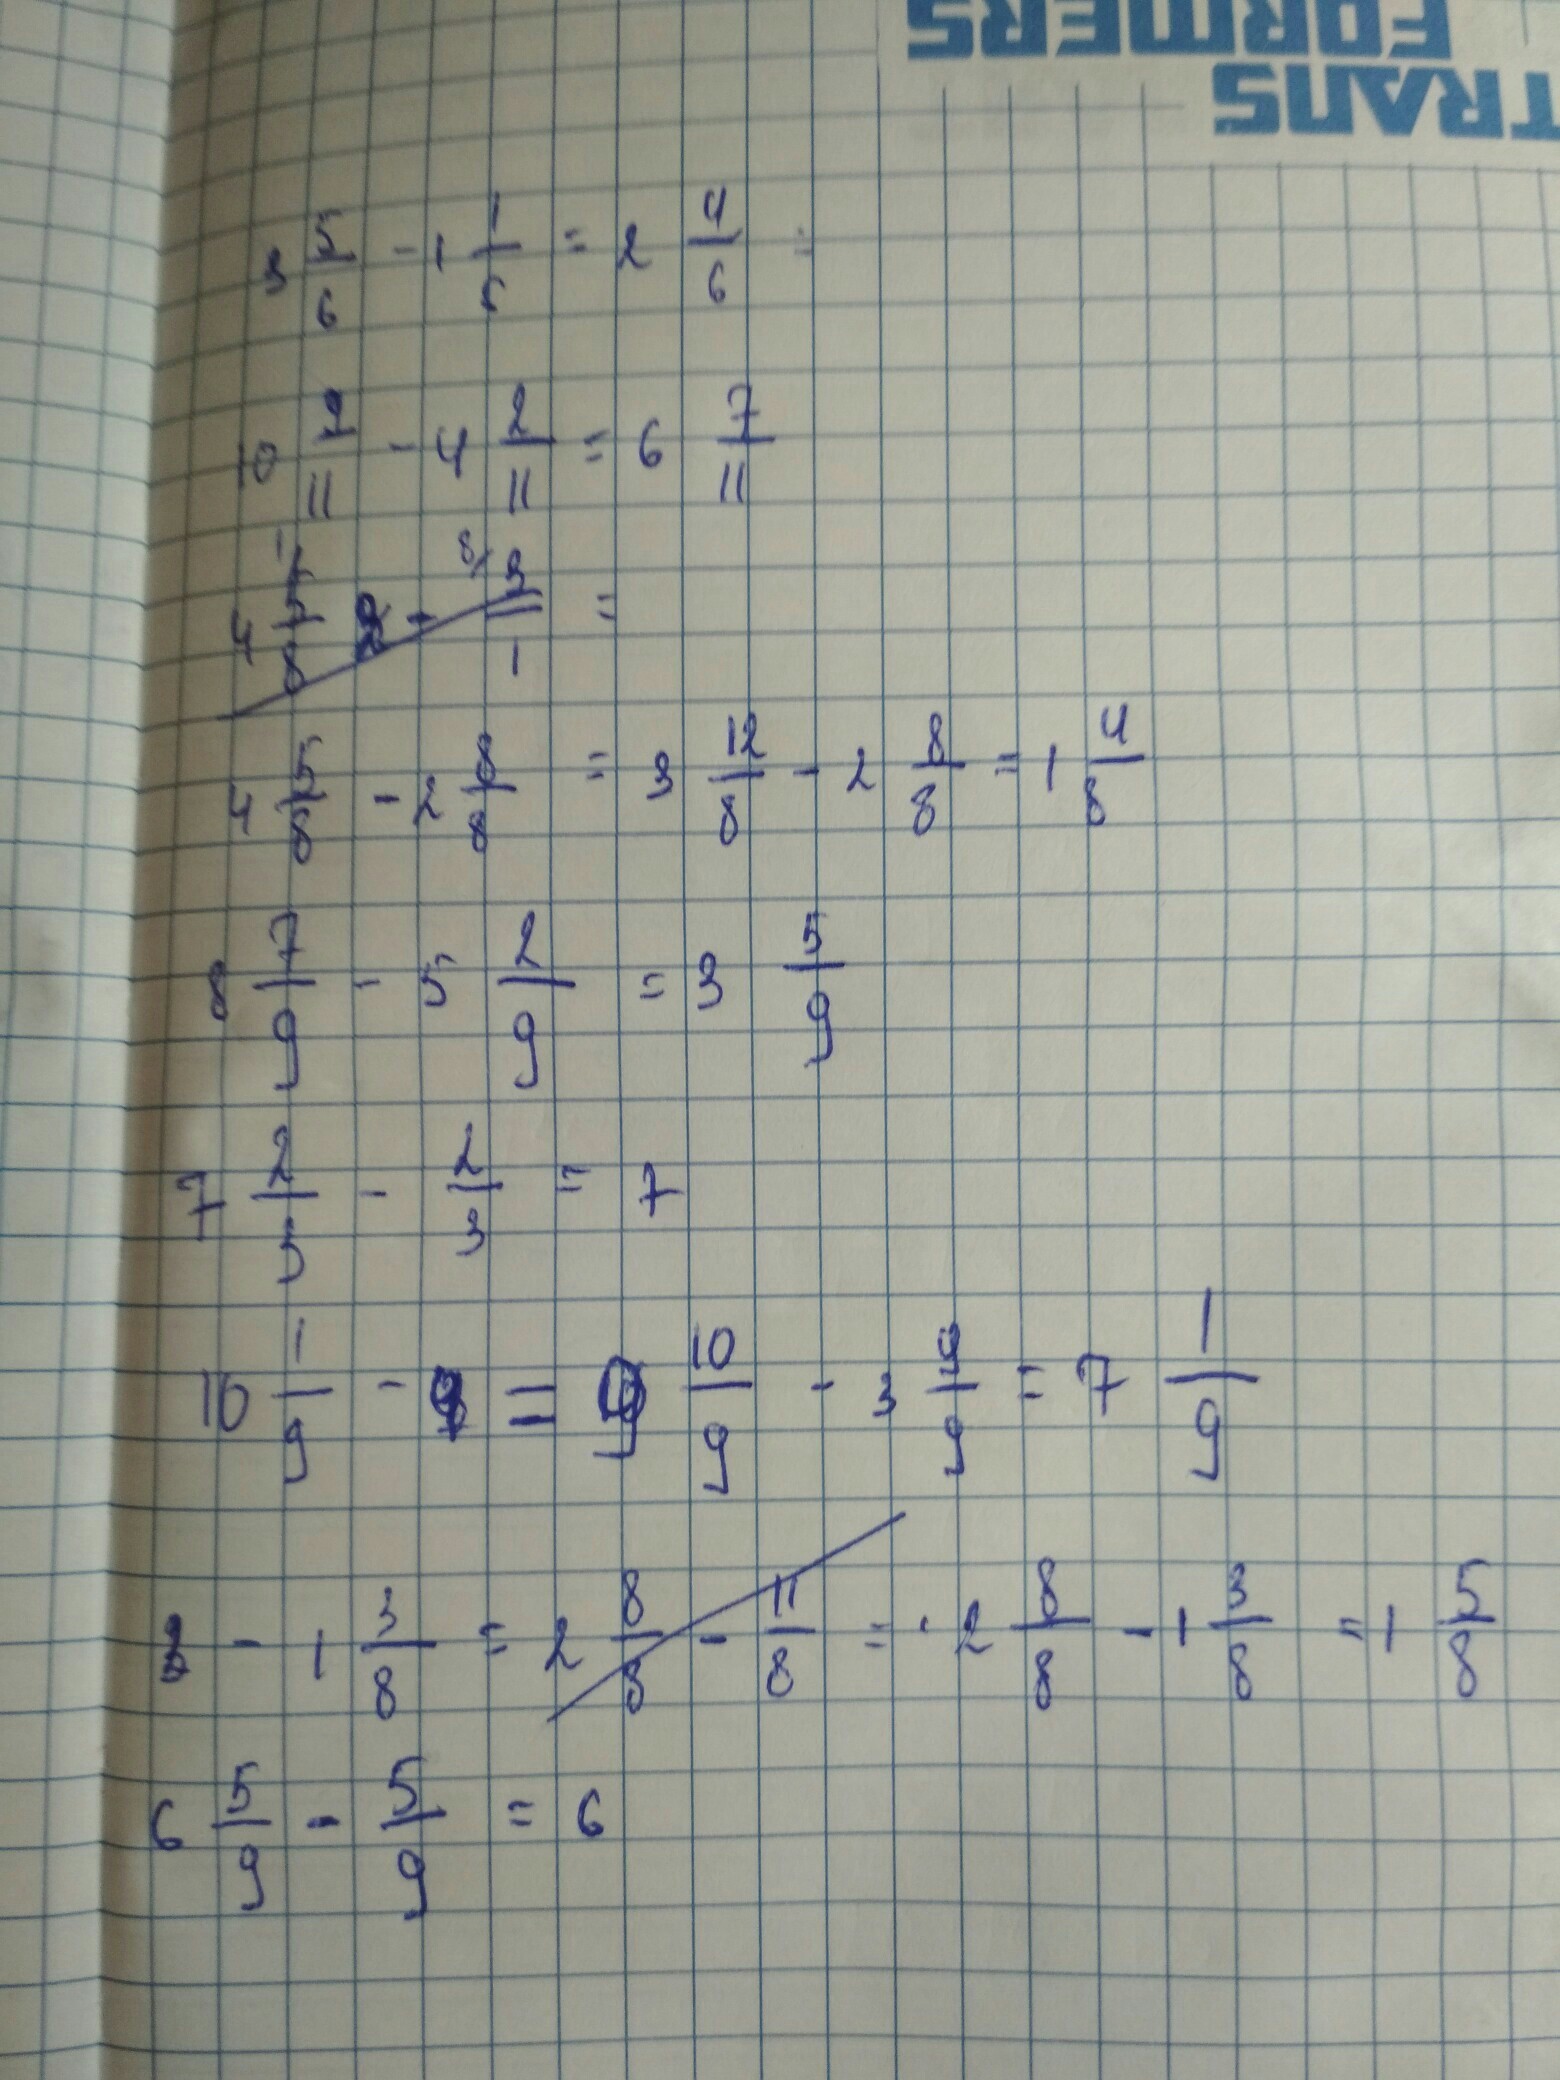 TRANS
FORMERS
3 5/6 - 1 1/6 = 2 4/6 =
10 9/11 - 4 2/11 = 6 7/11
4 - 3/1 =
4 5/8 - 2 8/8 = 3 12/8 - 2 8/8 = 1 4/8
8 7/9 - 5 2/9 = 3 5/9
7 2/3 - 2/3 = 7
10 1/9 - = 9 10/9 - 3 9/9 = 7 1/9
3 - 1 3/8 = 2 8/8 - 11/8 = 2 8/8 - 1 3/8 = 1 5/8
6 5/9 - 5/9 = 6